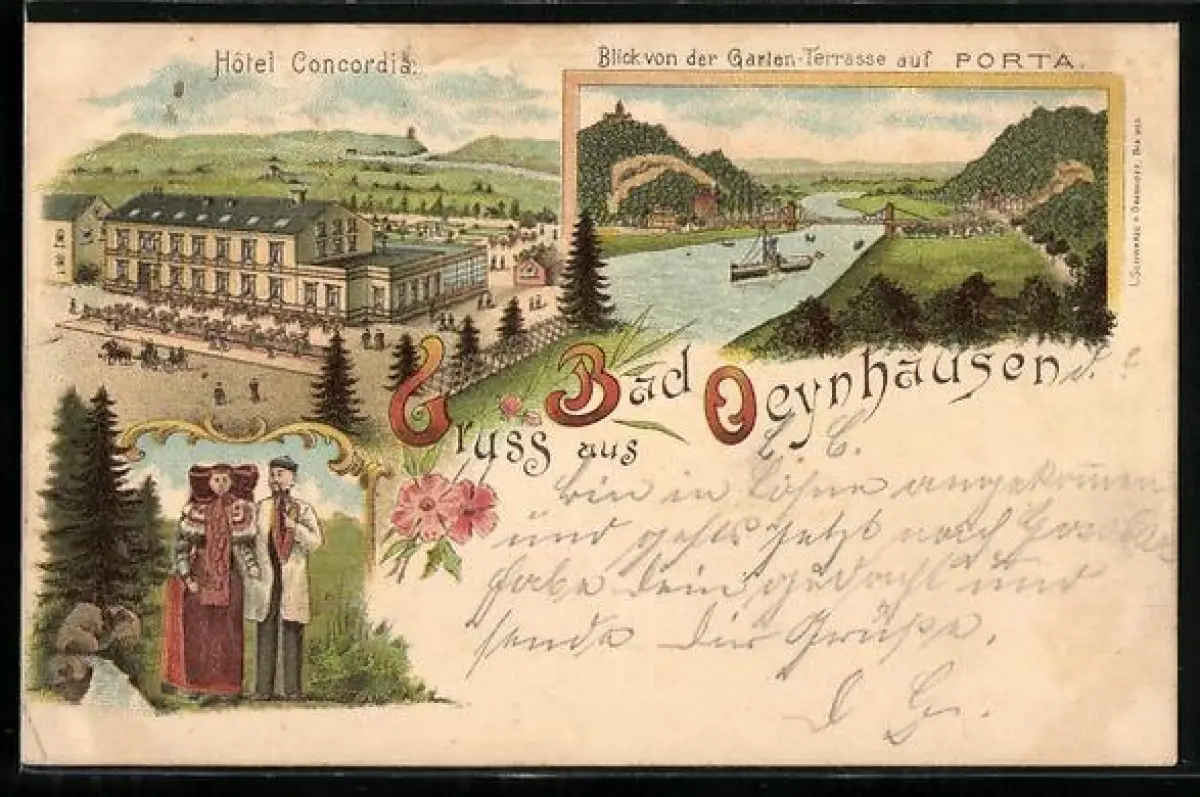 Hôtel Concordia.
Blick von der Garten-Terrasse auf PORTA.
Gruss aus Bad Oeynhausen
L. C.
bin in Löhne angekommen
und gehts jetzt nach
habe Dein gedacht und
sende Dir Grüße.